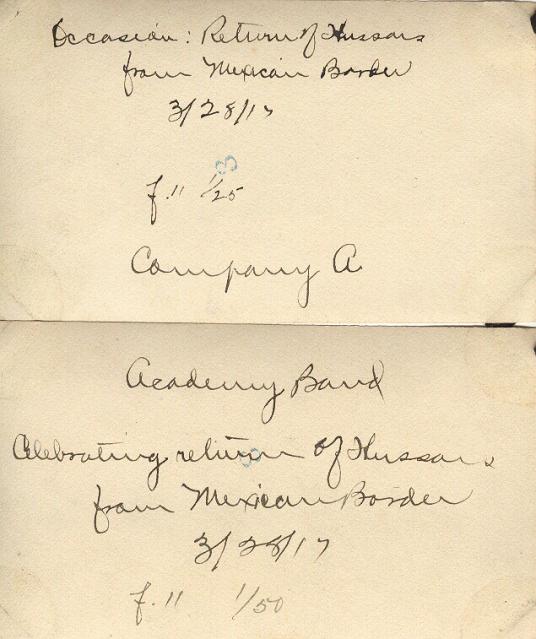 Occasion: Return of Hussars
from Mexican Border
3/28/17
3
f.11 1/25
Company A
Academy Band
Celebrating return of Hussars
from Mexican Border
3/28/17
f.11 1/50